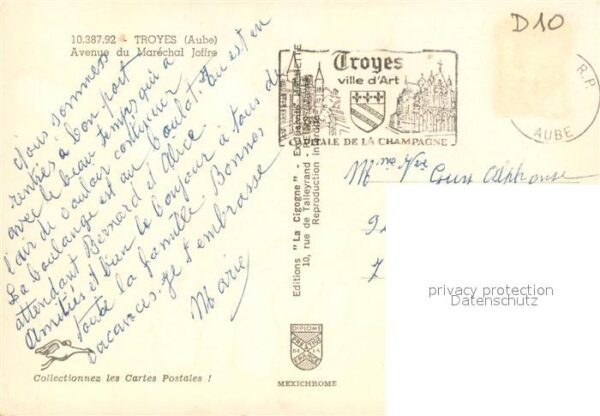 10.387.92 - TROYES (Aube)
Avenue du Maréchal Joffre
Nous sommes
rentrés à bon port
avec le beau temps qui a
l'air de vouloir continuer
La boulange est au boulot. On est en
attendant Bernard et Alice
Amitiés et bien le bonjour à tous de
toute la famille Bonnes
vacances. Je t'embrasse
Marie
Collectionnez les Cartes Postales !
Editions "La Cigogne" -
10, rue de Talleyrand -
Reproduction interdite
DIPLOME
PRESTIGE
DE LA
FRANCE
MEXICHROME
Troyes
ville d'Art
CAPITALE DE LA CHAMPAGNE
D10
R.P.
AUBE
Cours Alphonse
privacy protection
Datenschutz